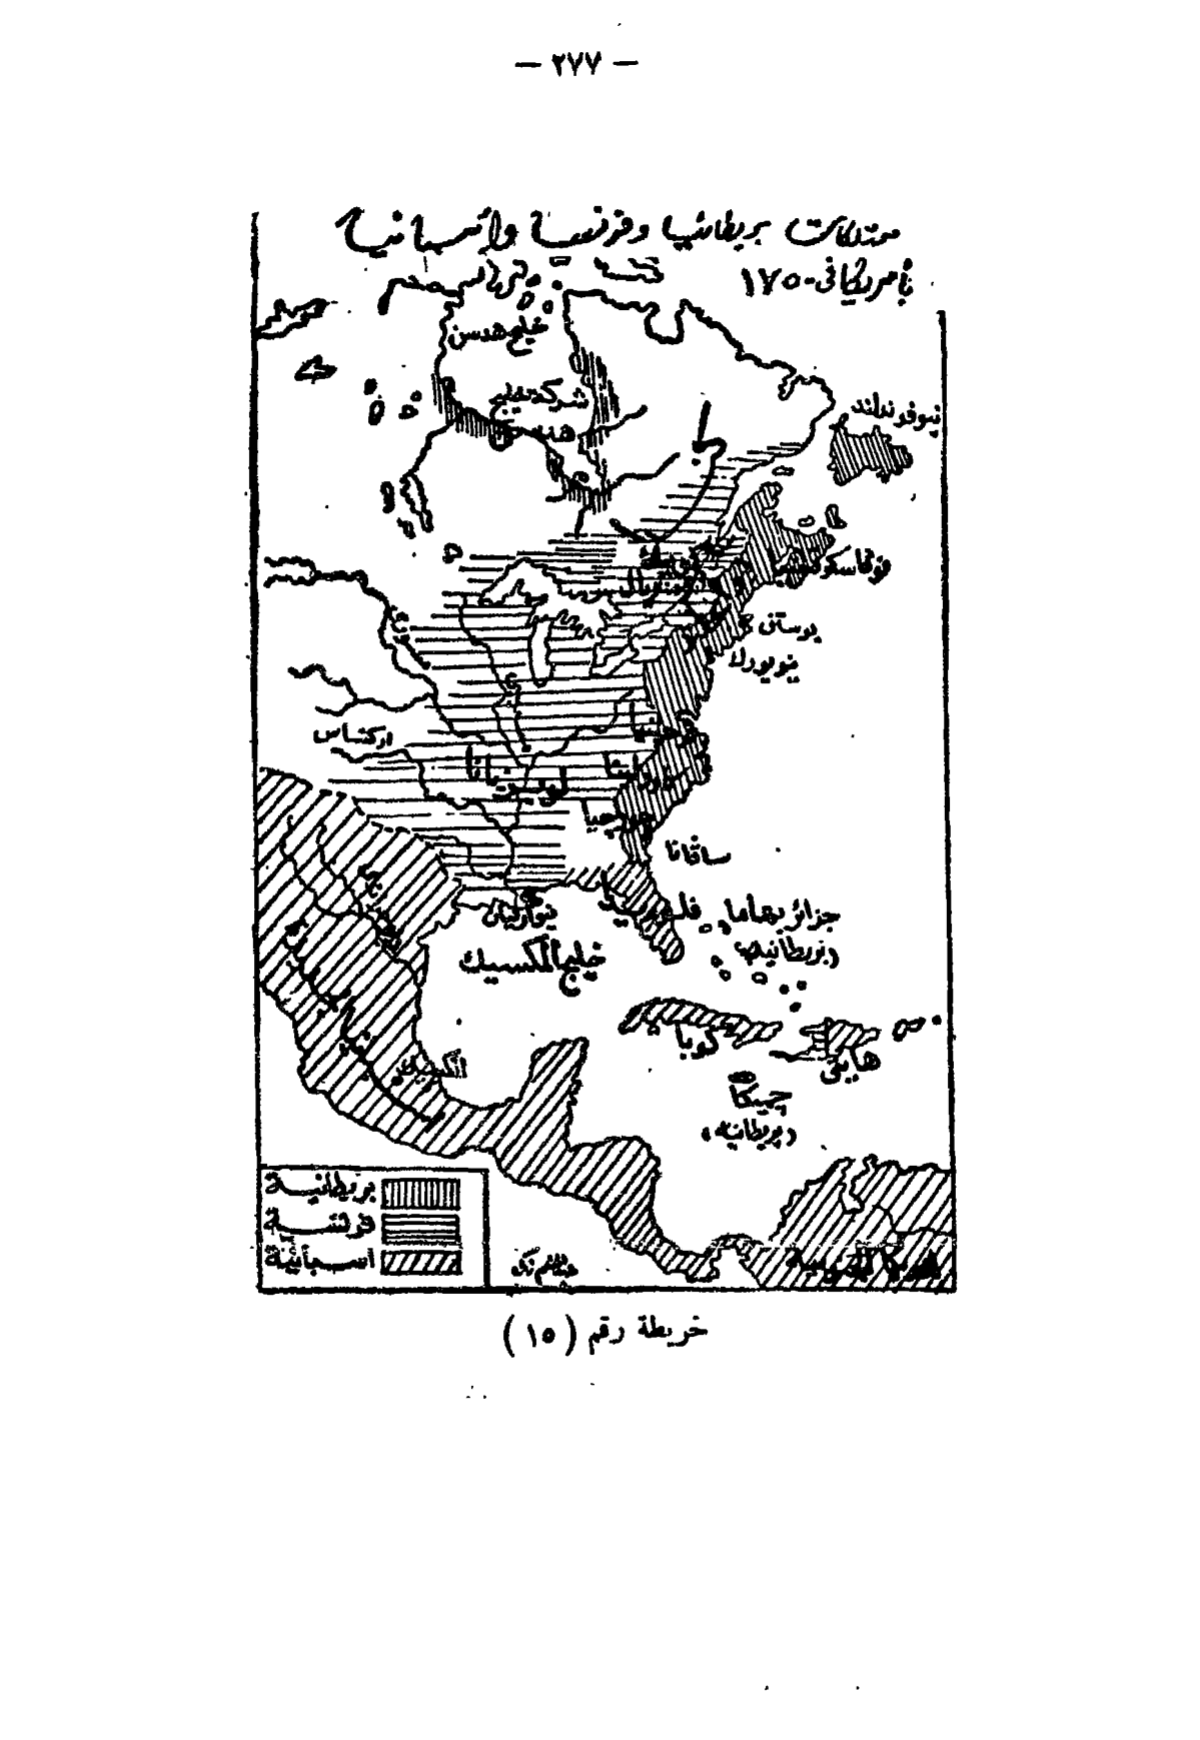 — ٢٧٧ —
ممتلكات بريطانيا وفرنسا وأسبانيا
بأمريكا في ١٧٥٠
خليج هدسن
شركة خليج
هدسن
نيوفوندلاند
نوفاسكوشيا
مونتريال
بوستن
نيويورك
اركنساس
لويزيانا
فرجينيا
جورجيا
ساڤانا
نيوأورليان
فلوريدا
جزائر بهاما
(بريطانية)
خليج المكسيك
المكسيك
كوبا
هايتى
چميكا
(بريطانية)
بريطانية
فرنسية
اسبانية
خريطة رقم (١٥)